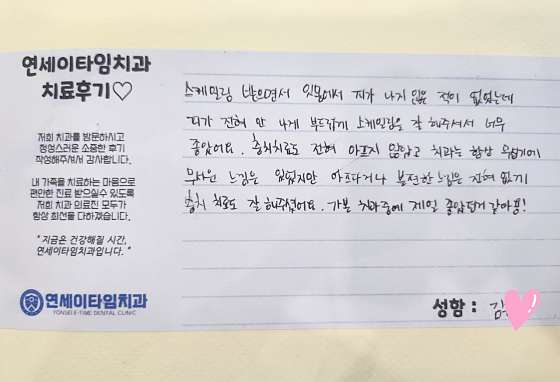 연세이타임치과
치료후기♡
저희 치과를 방문하시고
정성스러운 소중한 후기
작성해주셔서 감사합니다.
내 가족을 치료하는 마음으로
편안한 진료 받으실수 있도록
저희 치과 의료진 모두가
항상 최선을 다하겠습니다.
" 지금은 건강해질 시간,
연세이타임치과입니다. "
연세이타임치과
YONSEI E-TIME DENTAL CLINIC
스케일링 받으면서 잇몸에서 피가 나지 않은 적이 없었는데
피가 전혀 안 나게 부드럽게 스케일링을 잘 해주셔서 너무
좋았어요. 충치치료도 전혀 아프지 않았고 치과는 항상
무서운 느낌은 있었지만 아프다거나 불편한 느낌은 전혀 없기
충치 치료도 잘 해주셨어요. 가본 치과중에 제일 좋았던거 같아용!
성함 : 김